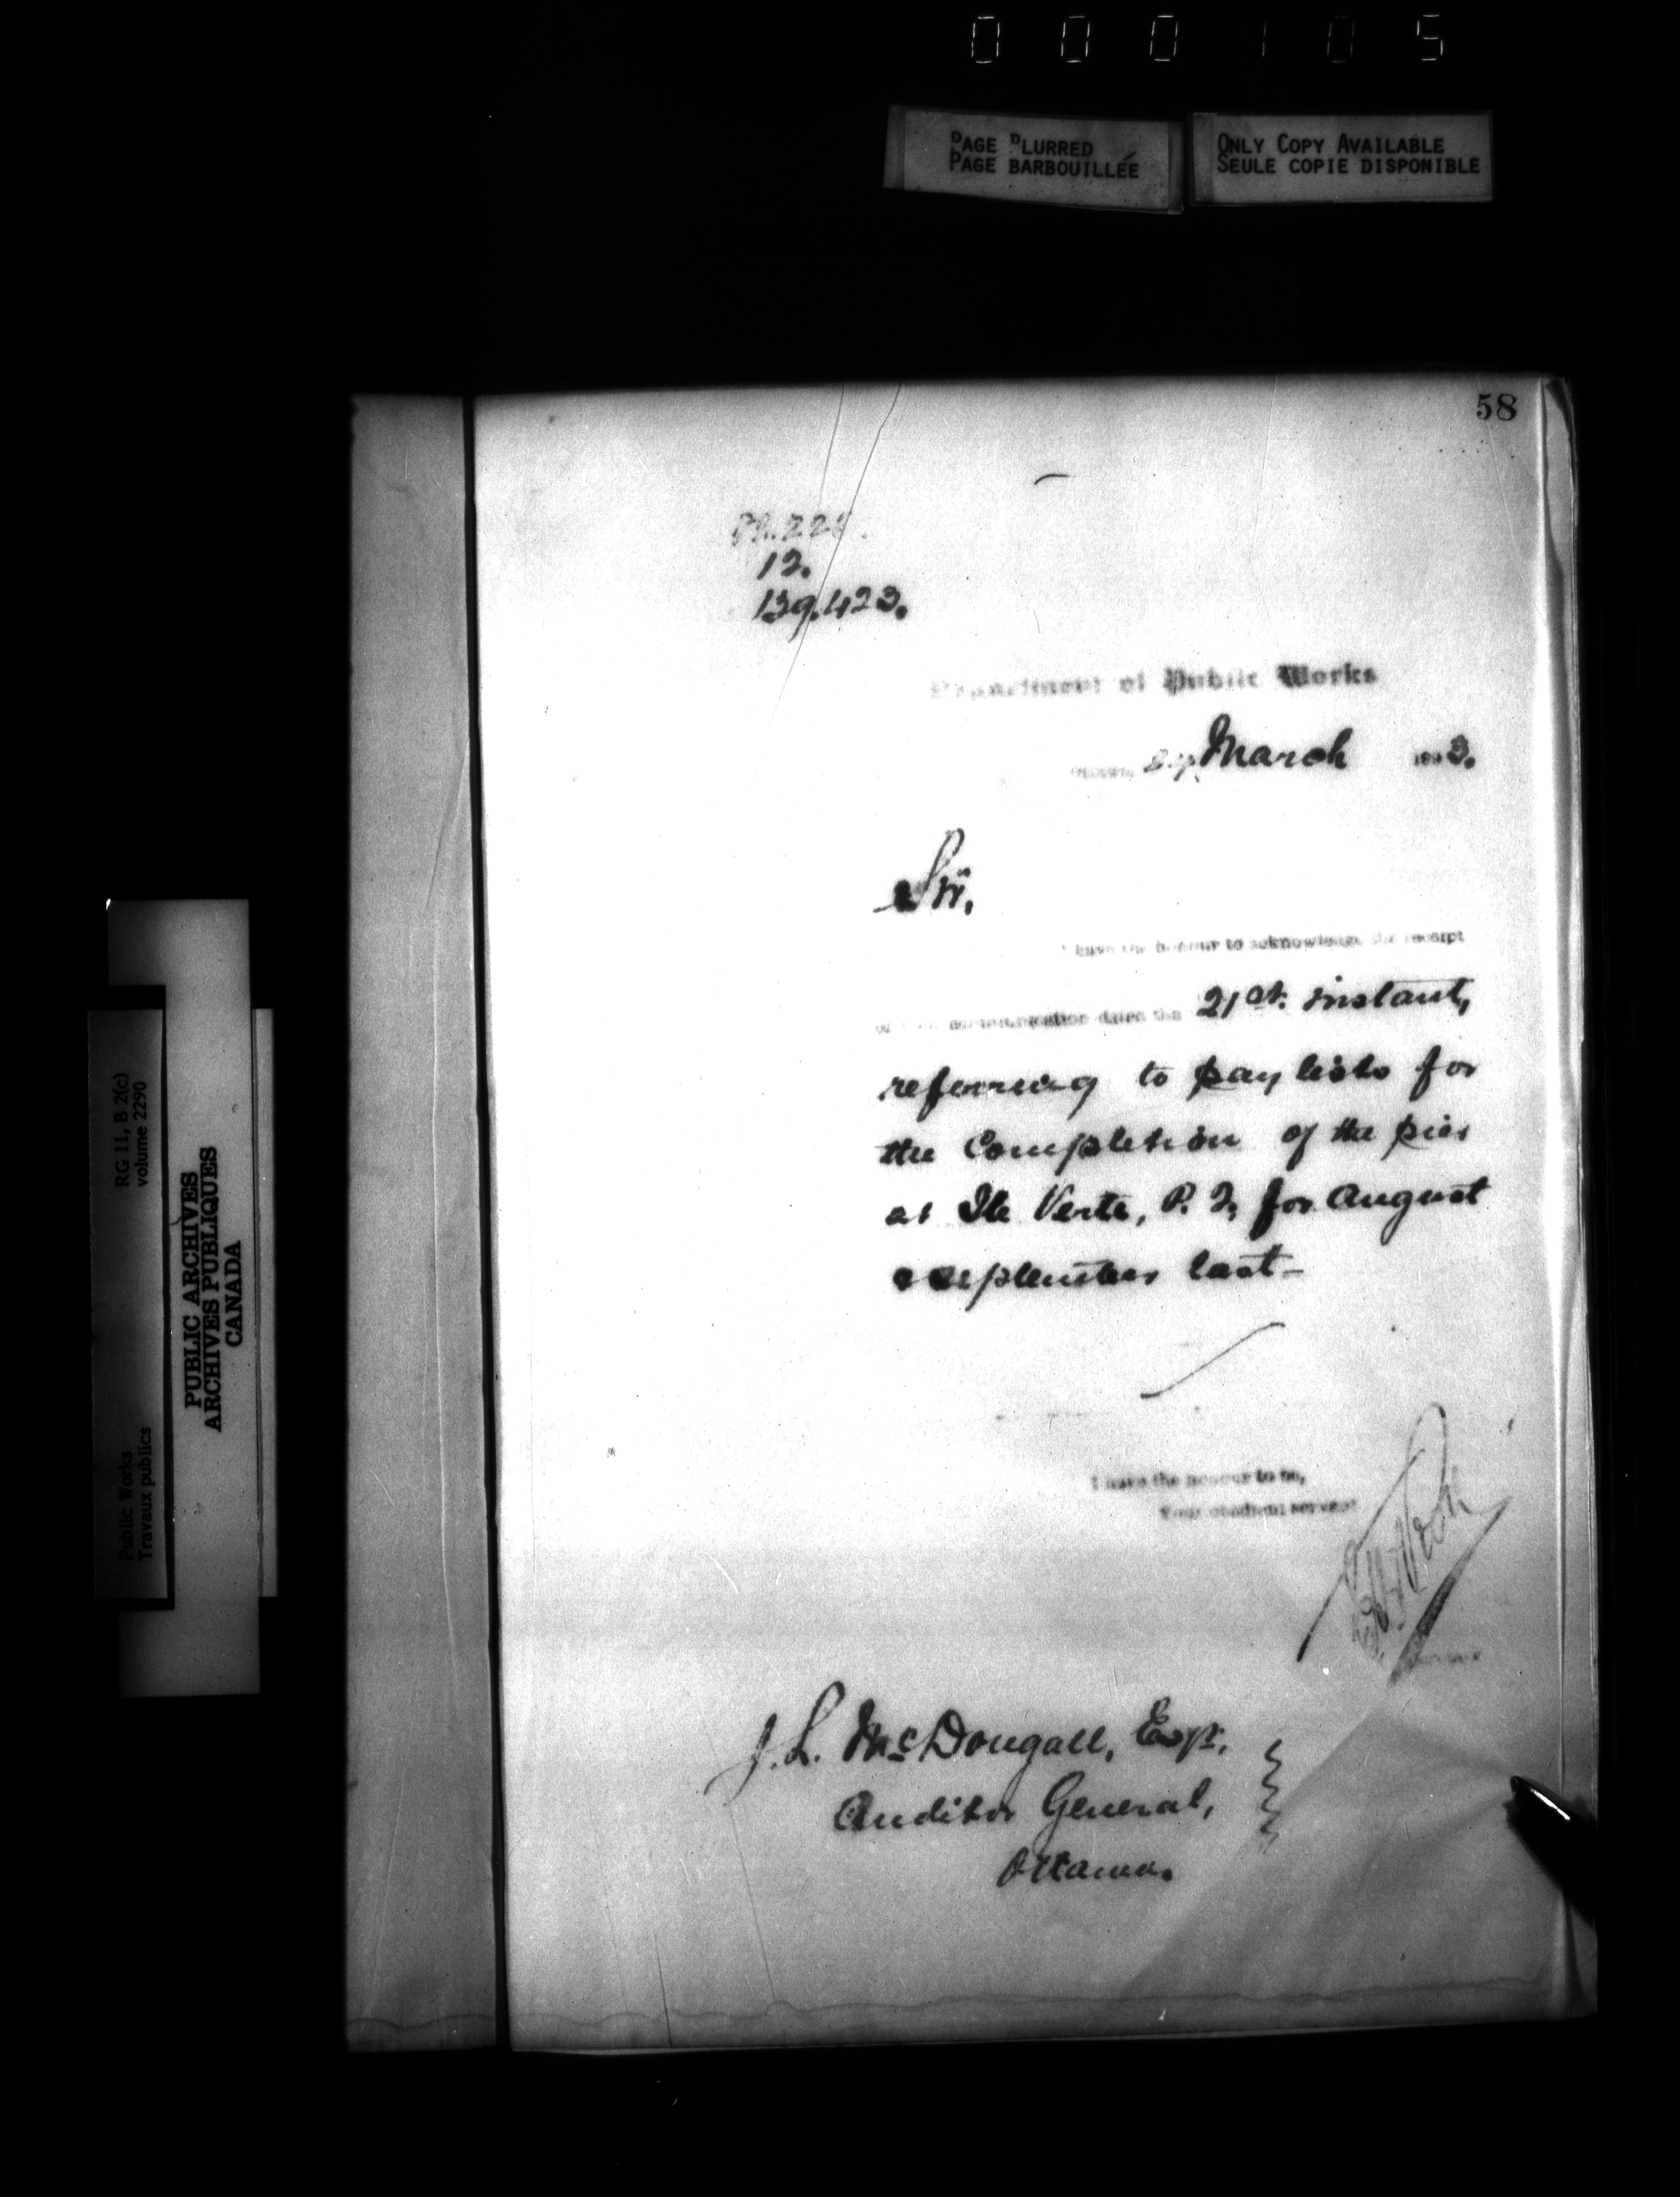 000105
PAGE BLURRED
PAGE BARBOUILLÉE
ONLY COPY AVAILABLE
SEULE COPIE DISPONIBLE
58
12.
139.423.
Department of Public Works
March 1893.
Sir,
I have the honour to acknowledge the receipt
of your communication dated the 21st. instant,
referring to pay lists for
the Completion of the pier
at Ile Verte, P. Q. for August
& september last -
I have the honour to be,
Your obedient servant
J. L. McDougall, Esqr.
Auditor General,
Ottawa.
Public Works
Travaux publics
RG 11, B 2(c)
volume 2290
PUBLIC ARCHIVES
ARCHIVES PUBLIQUES
CANADA